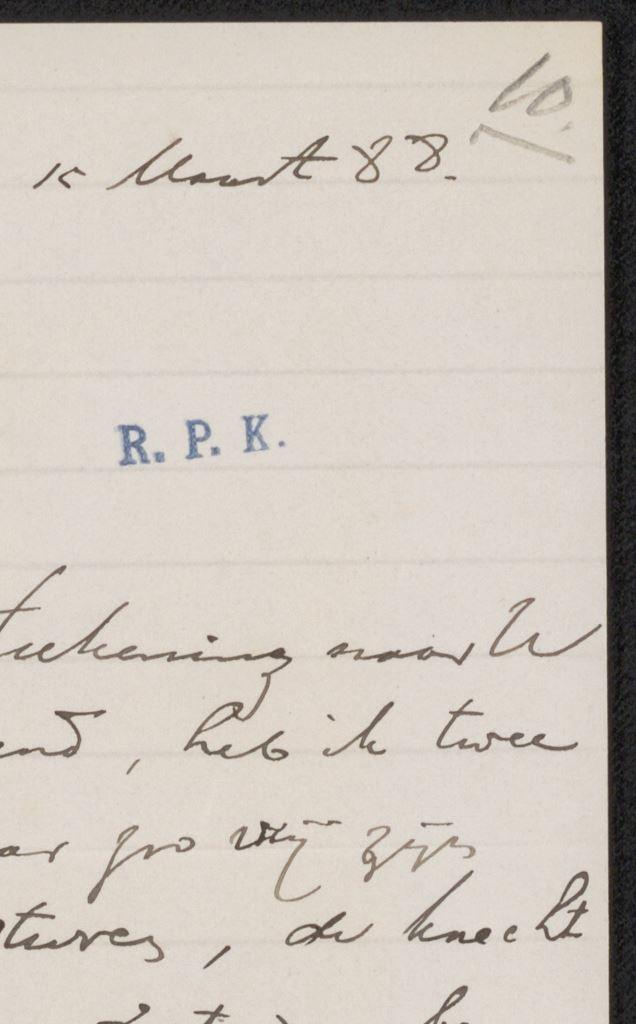 10.
15 Maart 88.
R. P. K.
teekening naar U
end, heb ik twee
zoo vrij zijn
turen, de knecht